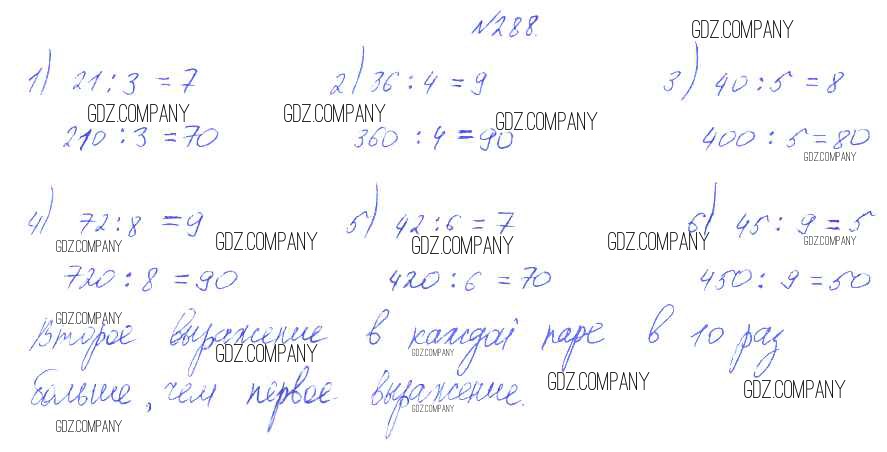 №288.
GDZ.COMPANY
1) 21:3 = 7 2) 36:4 = 9 3) 40:5 = 8
GDZ.COMPANY GDZ.COMPANY GDZ.COMPANY
210:3 = 70 360:4 = 90 400:5 = 80
GDZ.COMPANY
4) 72:8 = 9 5) 42:6 = 7 6) 45:9 = 5
GDZ.COMPANY GDZ.COMPANY GDZ.COMPANY GDZ.COMPANY GDZ.COMPANY
720:8 = 90 420:6 = 70 450:9 = 50
GDZ.COMPANY
Второе выражение в каждой паре в 10 раз
GDZ.COMPANY GDZ.COMPANY
больше, чем первое выражение.
GDZ.COMPANY GDZ.COMPANY
GDZ.COMPANY GDZ.COMPANY